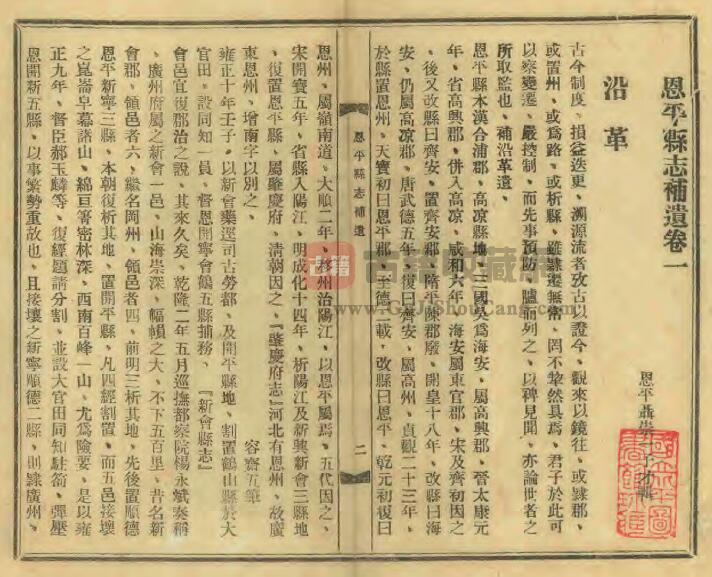 恩平縣志補遺卷一
恩平聶崇一子才輯
沿革
古今制度、損益迭更、溯源流者攷古以證今、觀來以鏡往、或隸郡、
或置州、或為路、或析縣、雖隸遷無常、罔不犂然具焉、君子於此可
以察變遷、嚴控制、而先事預防、臚而列之、以裨見聞、亦論世者之
所取監也、補沿革遺、
恩平縣本漢合浦郡、高凉縣地、三國吳為海安、屬高興郡、晉太康元
年、省高興郡、併入高凉、咸和六年、海安屬東官郡、宋及齊初因之
、後又改縣曰齊安、置齊安郡、隋平陳郡廢、開皇十八年、改縣曰海
安、仍屬高凉郡、唐武德五年、復曰齊安、屬高州、貞觀二十三年、
於縣置恩州、天寶初曰恩平郡、至德二載、改縣曰恩平、乾元初復曰
恩平縣志補遺
二
恩州、屬嶺南道、大順二年、移州治陽江、以恩平屬焉、五代因之、
宋開寶五年、省縣入陽江、明成化十四年、析陽江及新興新會三縣地
、復置恩平縣、屬肇慶府、清朝因之、『肇慶府志』河北有恩州、故廣
東恩州、增南字以別之、
容齋五筆
雍正十年壬子、以新會藥逕司古勞都、及開平縣地、割置鶴山縣於大
官田、設同知一員、督恩開寧會鶴五縣捕務、
『新會縣志』
會邑宜復郡治之說、其來久矣、乾隆二年五月巡撫都察院楊永斌奏稱
、廣州府屬之新會一邑、山海崇深、幅䫫之大、不下五百里、昔名新
會郡、領邑者六、繼名岡州、領邑者四、前明三析其地、先後置順德
恩平新寧三縣、本朝復析其地、置開平縣、凡四經割置、而五邑接壤
之崑崙皁幕諸山、綿亘箐密林深、西南百峰一山、尤為險要、是以雍
正九年、督臣郝玉麟等、復經題請分割、並設大官田同知駐箚、彈壓
恩開新五縣、以事繁勢重故也、且接壤之新寧順德二縣、則隸廣州、
古籍收藏
www.GuJiShouCang.com